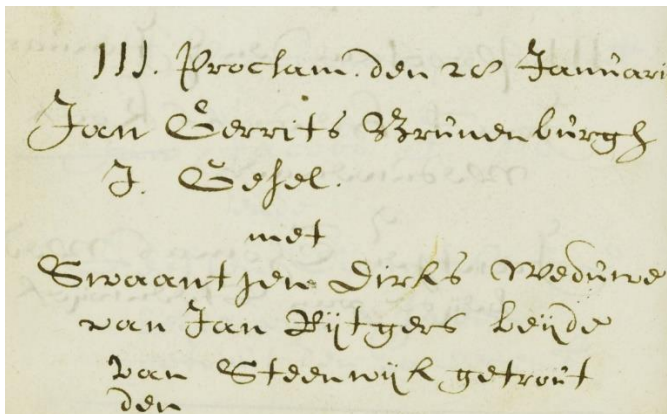 III. Proclam. den 28 Januari
Jan Gerrits Brunenburgh
J. Gesel.
met
Swaantjen Dirks Weduwe
van Jan Rijtgers beijde
van Steenwijk getrout
den